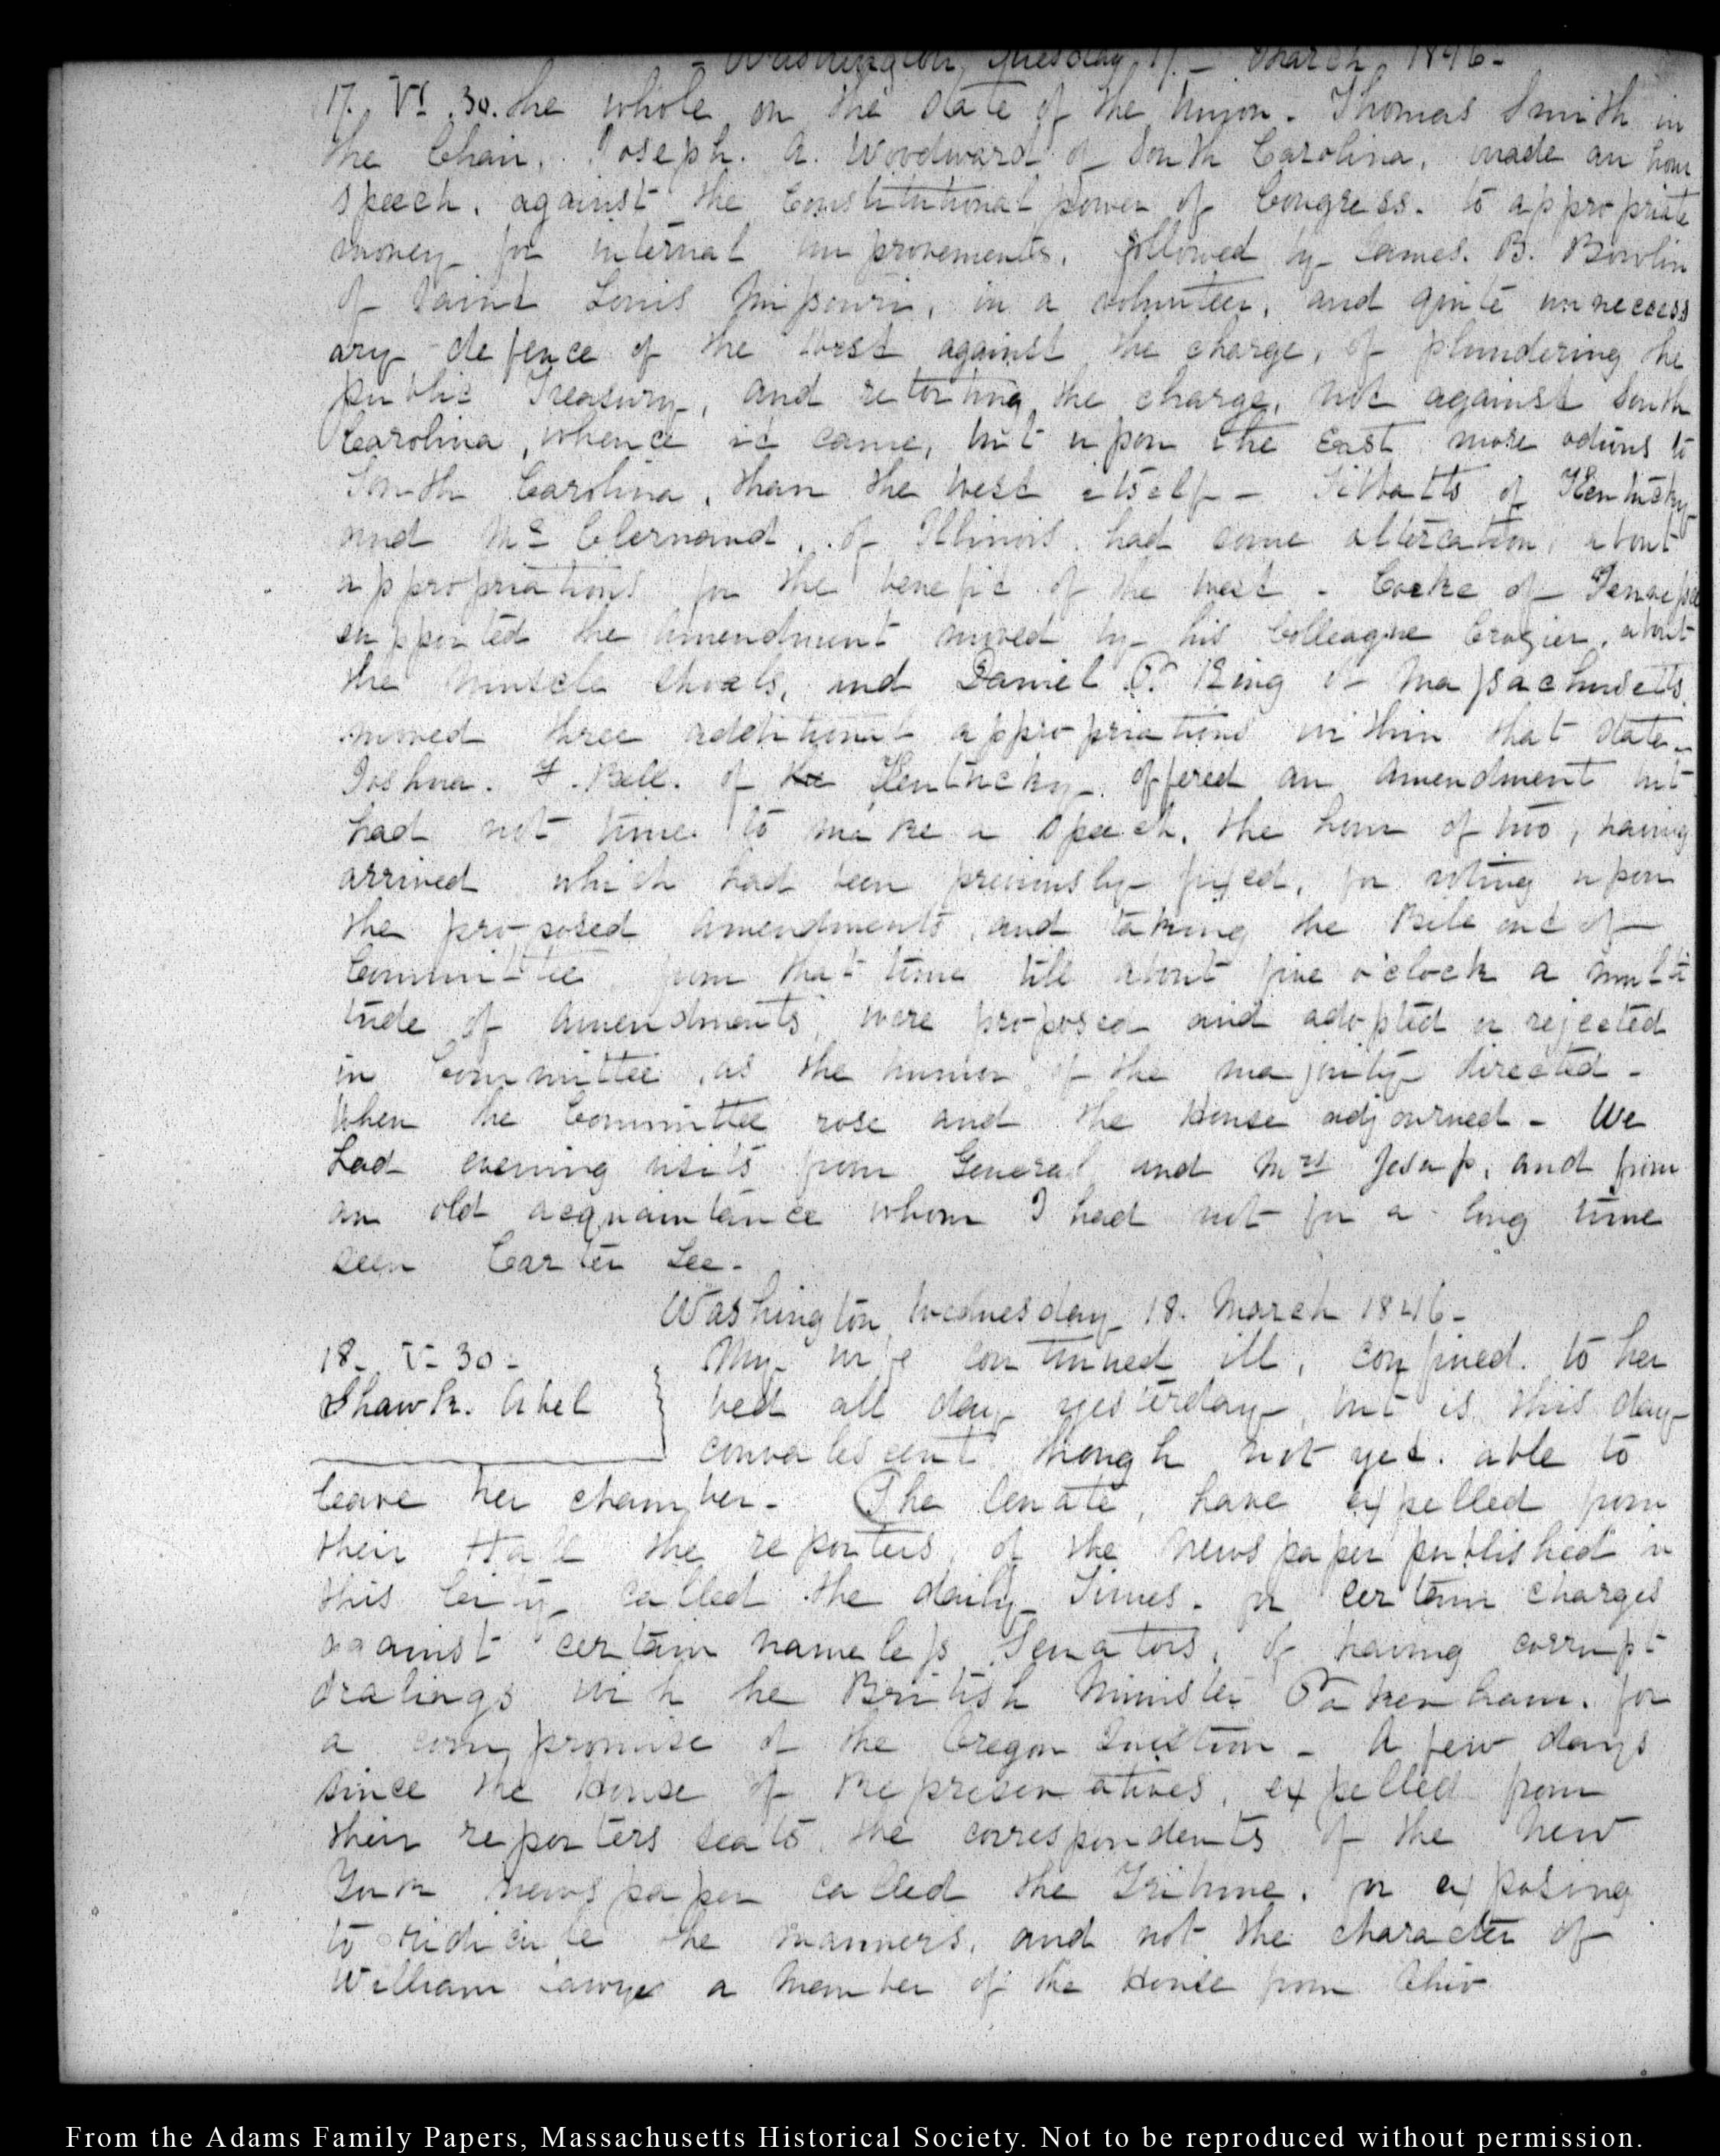 Washington, Tuesday 17. – March 1846–
17. VI. 30. the whole on the state of the Union. Thomas Smith in
the Chair. Joseph. A. Woodward of South Carolina, made an hour
speech, against the Constitutional power of Congress. to appropriate
money for internal improvements, followed by James. B. Bowlin
of Saint Louis Missouri, in a volunteer, and quite unnecess
ary defence of the West against the charge, of plundering the
public Treasury, and retorting the charge, not against South
Carolina, whence it came, but upon the East more odious to
South Carolina, than the West itself – Tibbatts of Kentucky
and Mc Clernand, of Illinois, had some altercation, about
appropriations for the benefit of the west – Cocke of Tennessee
supported the amendment moved by his Colleague Crozier, about
the Muscle Shoals, and Daniel P. King of Massachusetts
moved three additional appropriations within that State–
Joshua. F. Bell. of Kentucky, offered an amendment but
had not time to make a speech, the hour of two, having
arrived which had been previously fixed, for voting upon
the proposed amendments, and taking the Bill out of
Committee from that time till about five o'clock a multi
tude of amendments, were proposed and adopted or rejected
in Committee, as the humor of the majority directed –
when the Committee rose and the House adjourned – We
had evening visits from General and Mrs Jesup, and from
an old acquaintance whom I had not for a long time
seen Carter Lee–
Washington Wednesday 18. March 1846–
18– V– 30– My wife continued ill, confined. to her
Shawk. Abel bed all day yesterday, but is this day
convalescent though not yet. able to
leave her chamber– The Senate, have expelled from
their Hall the reporters, of the newspaper published in
this City called the daily Times– for certain charges
against certain nameless Senators, of having corrupt
dealings with the British Minister Pakenham, for
a compromise of the Oregon Question – A few days
since the House of Representatives, expelled from
their reporters seats, the correspondents of the New
York newspaper called the Tribune, for exposing
to ridicule the manners, and not the character of
William Sawyer a Member of the House from Ohio
From the Adams Family Papers, Massachusetts Historical Society. Not to be reproduced without permission.